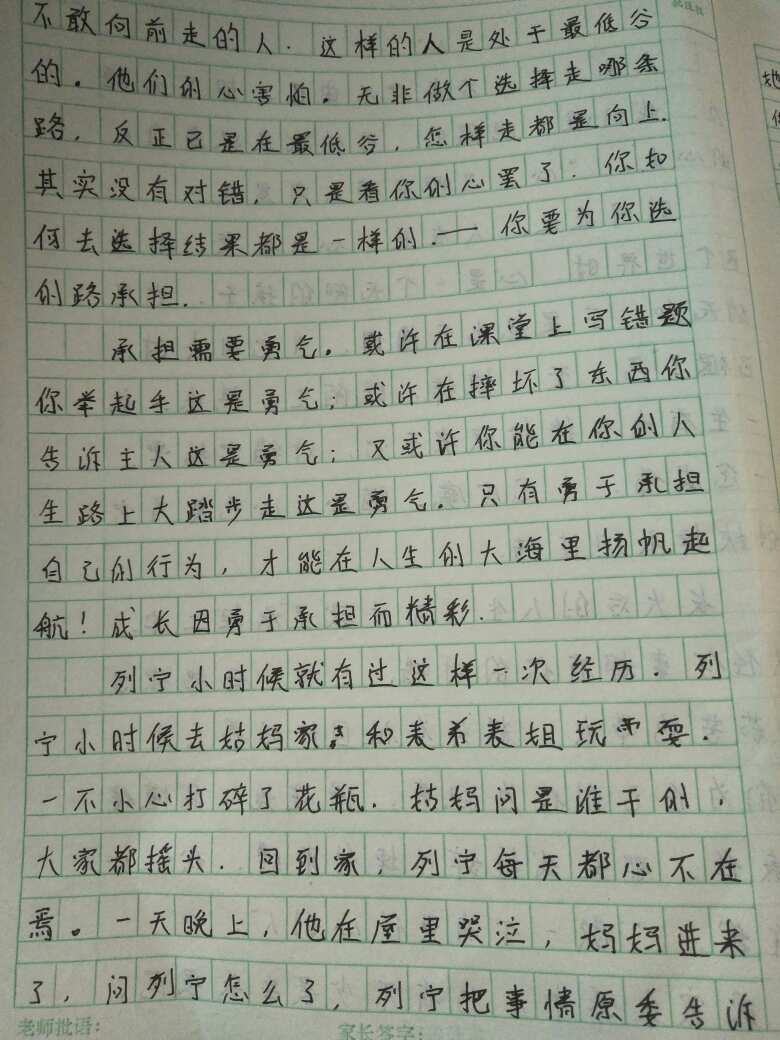 不敢向前走的人.这样的人是处于最低谷
的。他们的心害怕。无非做个选择走哪条
路,反正已是在最低谷,怎样走都是向上.
其实没有对错,只是看你的心罢了.你如
何去选择结果都是一样的.——你要为你选
的路承担.
承担需要勇气。或许在课堂上写错题
你举起手这是勇气;或许在摔坏了东西你
告诉主人这是勇气;又或许你能在你的人
生路上大踏步走这是勇气.只有勇于承担
自己的行为,才能在人生的大海里扬帆起
航!成长因勇于承担而精彩.
列宁小时候就有过这样一次经历.列
宁小时候去姑妈家。和表弟表姐玩耍.
一不小心打碎了花瓶.姑妈问是谁干的,
大家都摇头.回到家,列宁每天都心不在
焉。一天晚上,他在屋里哭泣,妈妈进来
了,问列宁怎么了,列宁把事情原委告诉
老师批语: 家长签字: